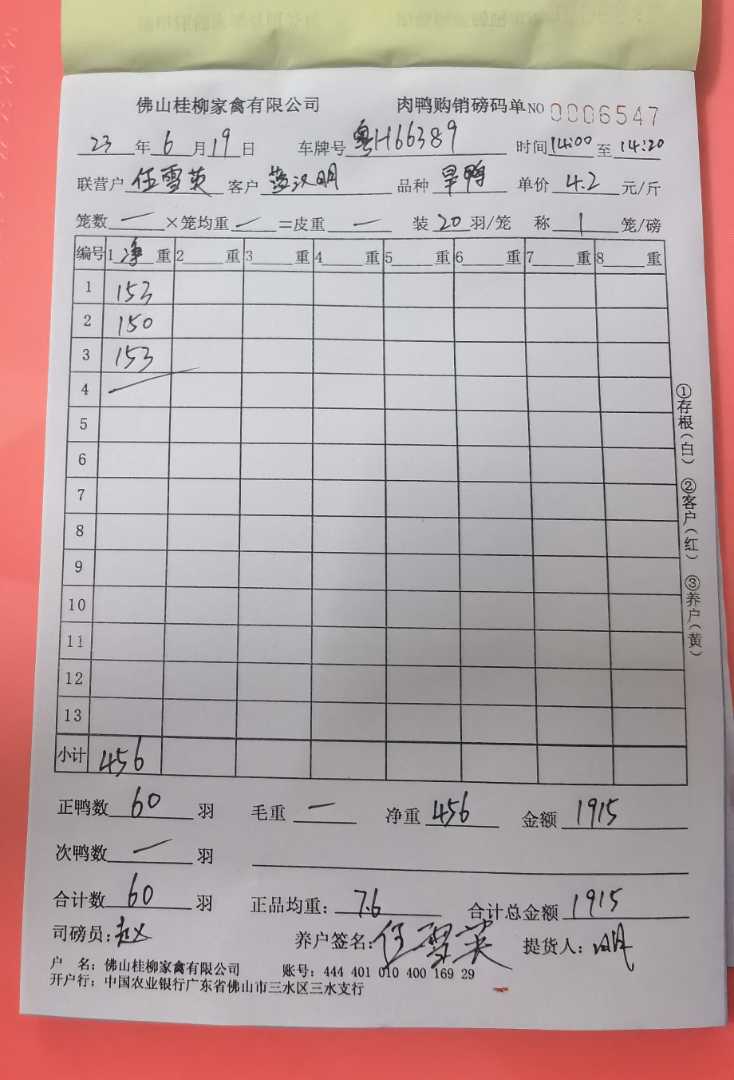 佛山桂柳家禽有限公司 肉鸭购销磅码单 NO 0006547
23 年 6 月 19 日 车牌号 粤H66389 时间 14:00 至 14:20
联营户 伍雪英 客户 汉明 品种 旱鸭 单价 4.2 元/斤
笼数 一 ×笼均重 一 =皮重 一 装 20 羽/笼 称 1 笼/磅
编号 1 净 重 2 重 3 重 4 重 5 重 6 重 7 重 8 重
1 153
2 150
3 153
4
5
6
7
8
9
10
11
12
13
小计 456
正鸭数 60 羽 毛重 一 净重 456 金额 1915
次鸭数 一 羽
合计数 60 羽 正品均重: 7.6 合计总金额 1915
司磅员: 养户签名: 伍雪英 提货人: 明
户 名: 佛山桂柳家禽有限公司 账号: 444 401 010 400 169 29
开户行: 中国农业银行广东省佛山市三水区三水支行
①存根(白) ②客户(红) ③养户(黄)